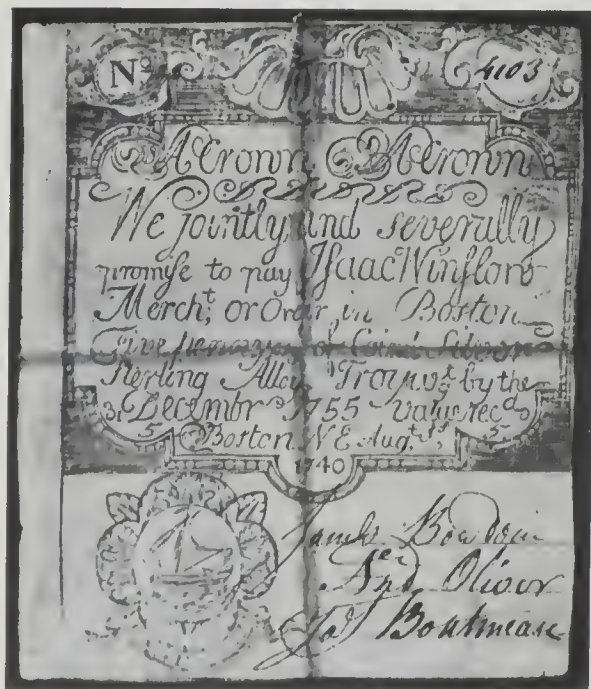 No 4103
A Crown A Crown
We jointly and severally
promise to pay Isaac Winslow
Mercht, or Order, in Boston
Five of Coin'd Silver
Sterling Alloy Troy wt. by the
31 Decembr 1755 Value recd
5 Boston N E Augt. 1st, 5
1740
James Bowdoin
And Oliver
Boutineau